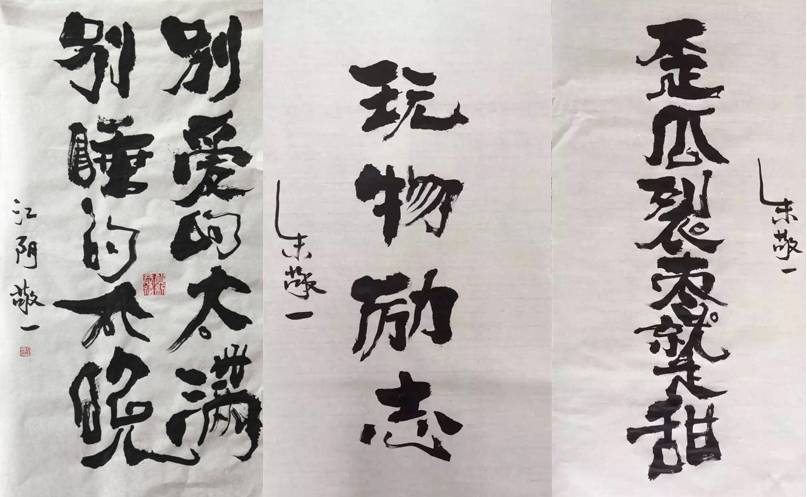 别爱的太满
别睡的太晚
江阴敬一
玩物励志
朱敬一
歪瓜裂枣就是甜
朱敬一